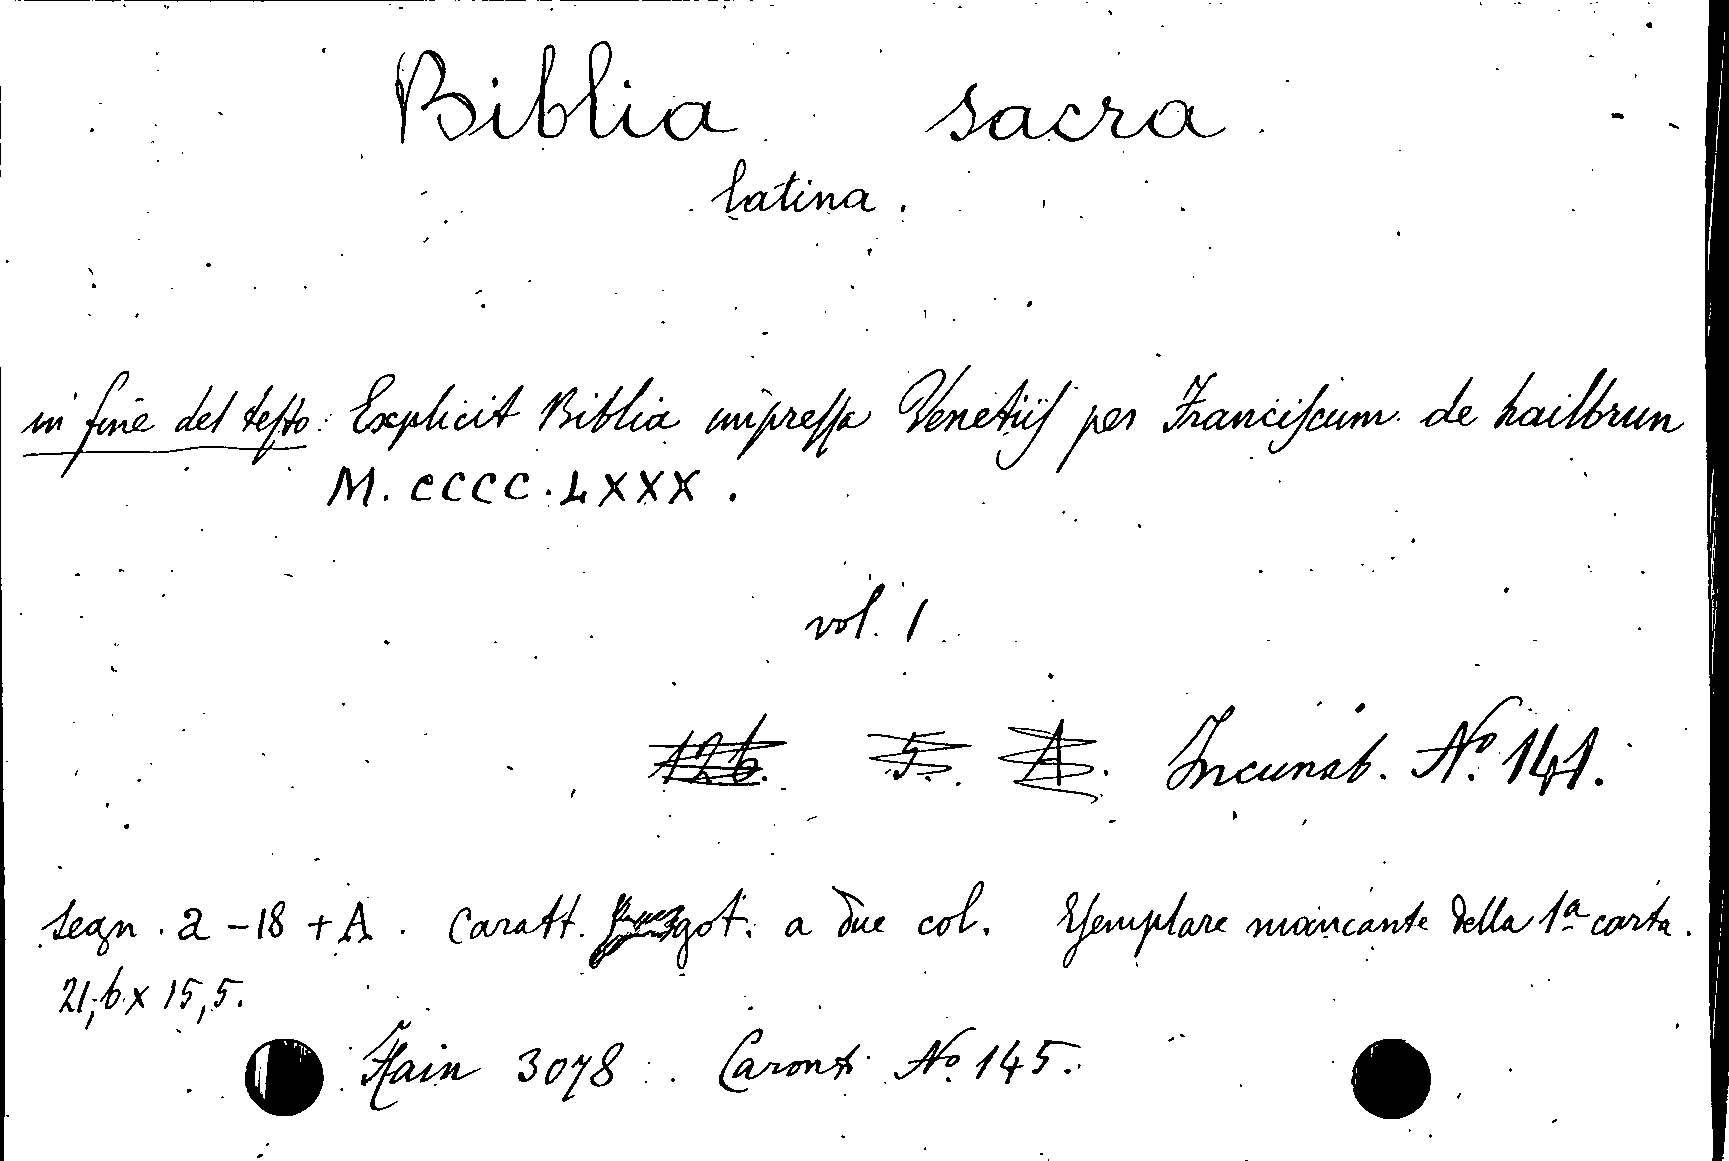 Biblia sacra
latina.
in fine del teſto: Explicit Biblia impreſſa Venetiiſ per Franciſcum de hailbrun
M. CCCC. LXXX.
vol. 1
126. 5. A. Incunab. Nº 141.
segn. a - 18 + A. Caratt. got. a due col. Eſemplare mancante della 1ª carta.
21,6 x 15,5.
Hain 3078. Caronti Nº 145.